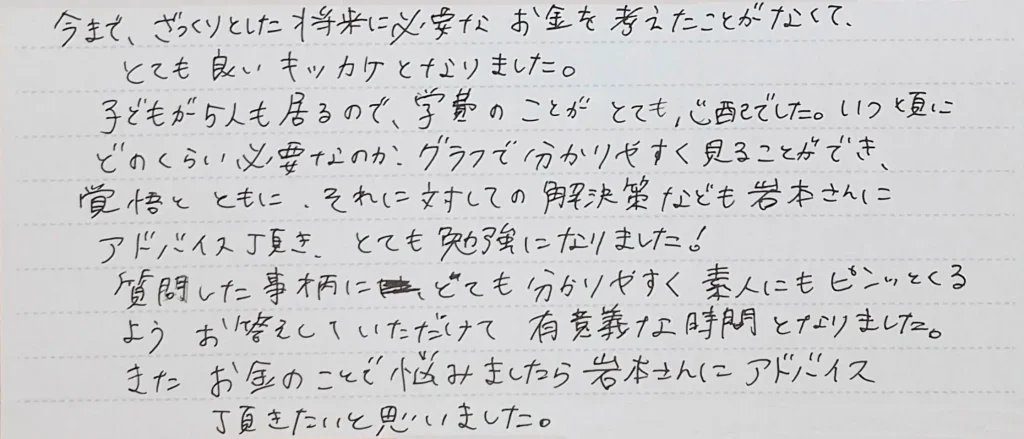 今まで、ざっくりとした将来に必要な お金を考えたことがなくて、
とても良いキッカケとなりました。
子どもが5人も居るので、学費のことが とても心配でした。いつ頃に
どのくらい必要なのか、グラフで分かりやすく見ることができ、
覚悟とともに、それに対しての解決策なども岩本さんに
アドバイス頂き、とても勉強になりました!
質問した事柄に、とても分かりやすく素人にもピンッとくる
よう お答えしていただけて 有意義な時間となりました。
また お金のことで悩みましたら岩本さんにアドバイス
頂きたいと思いました。